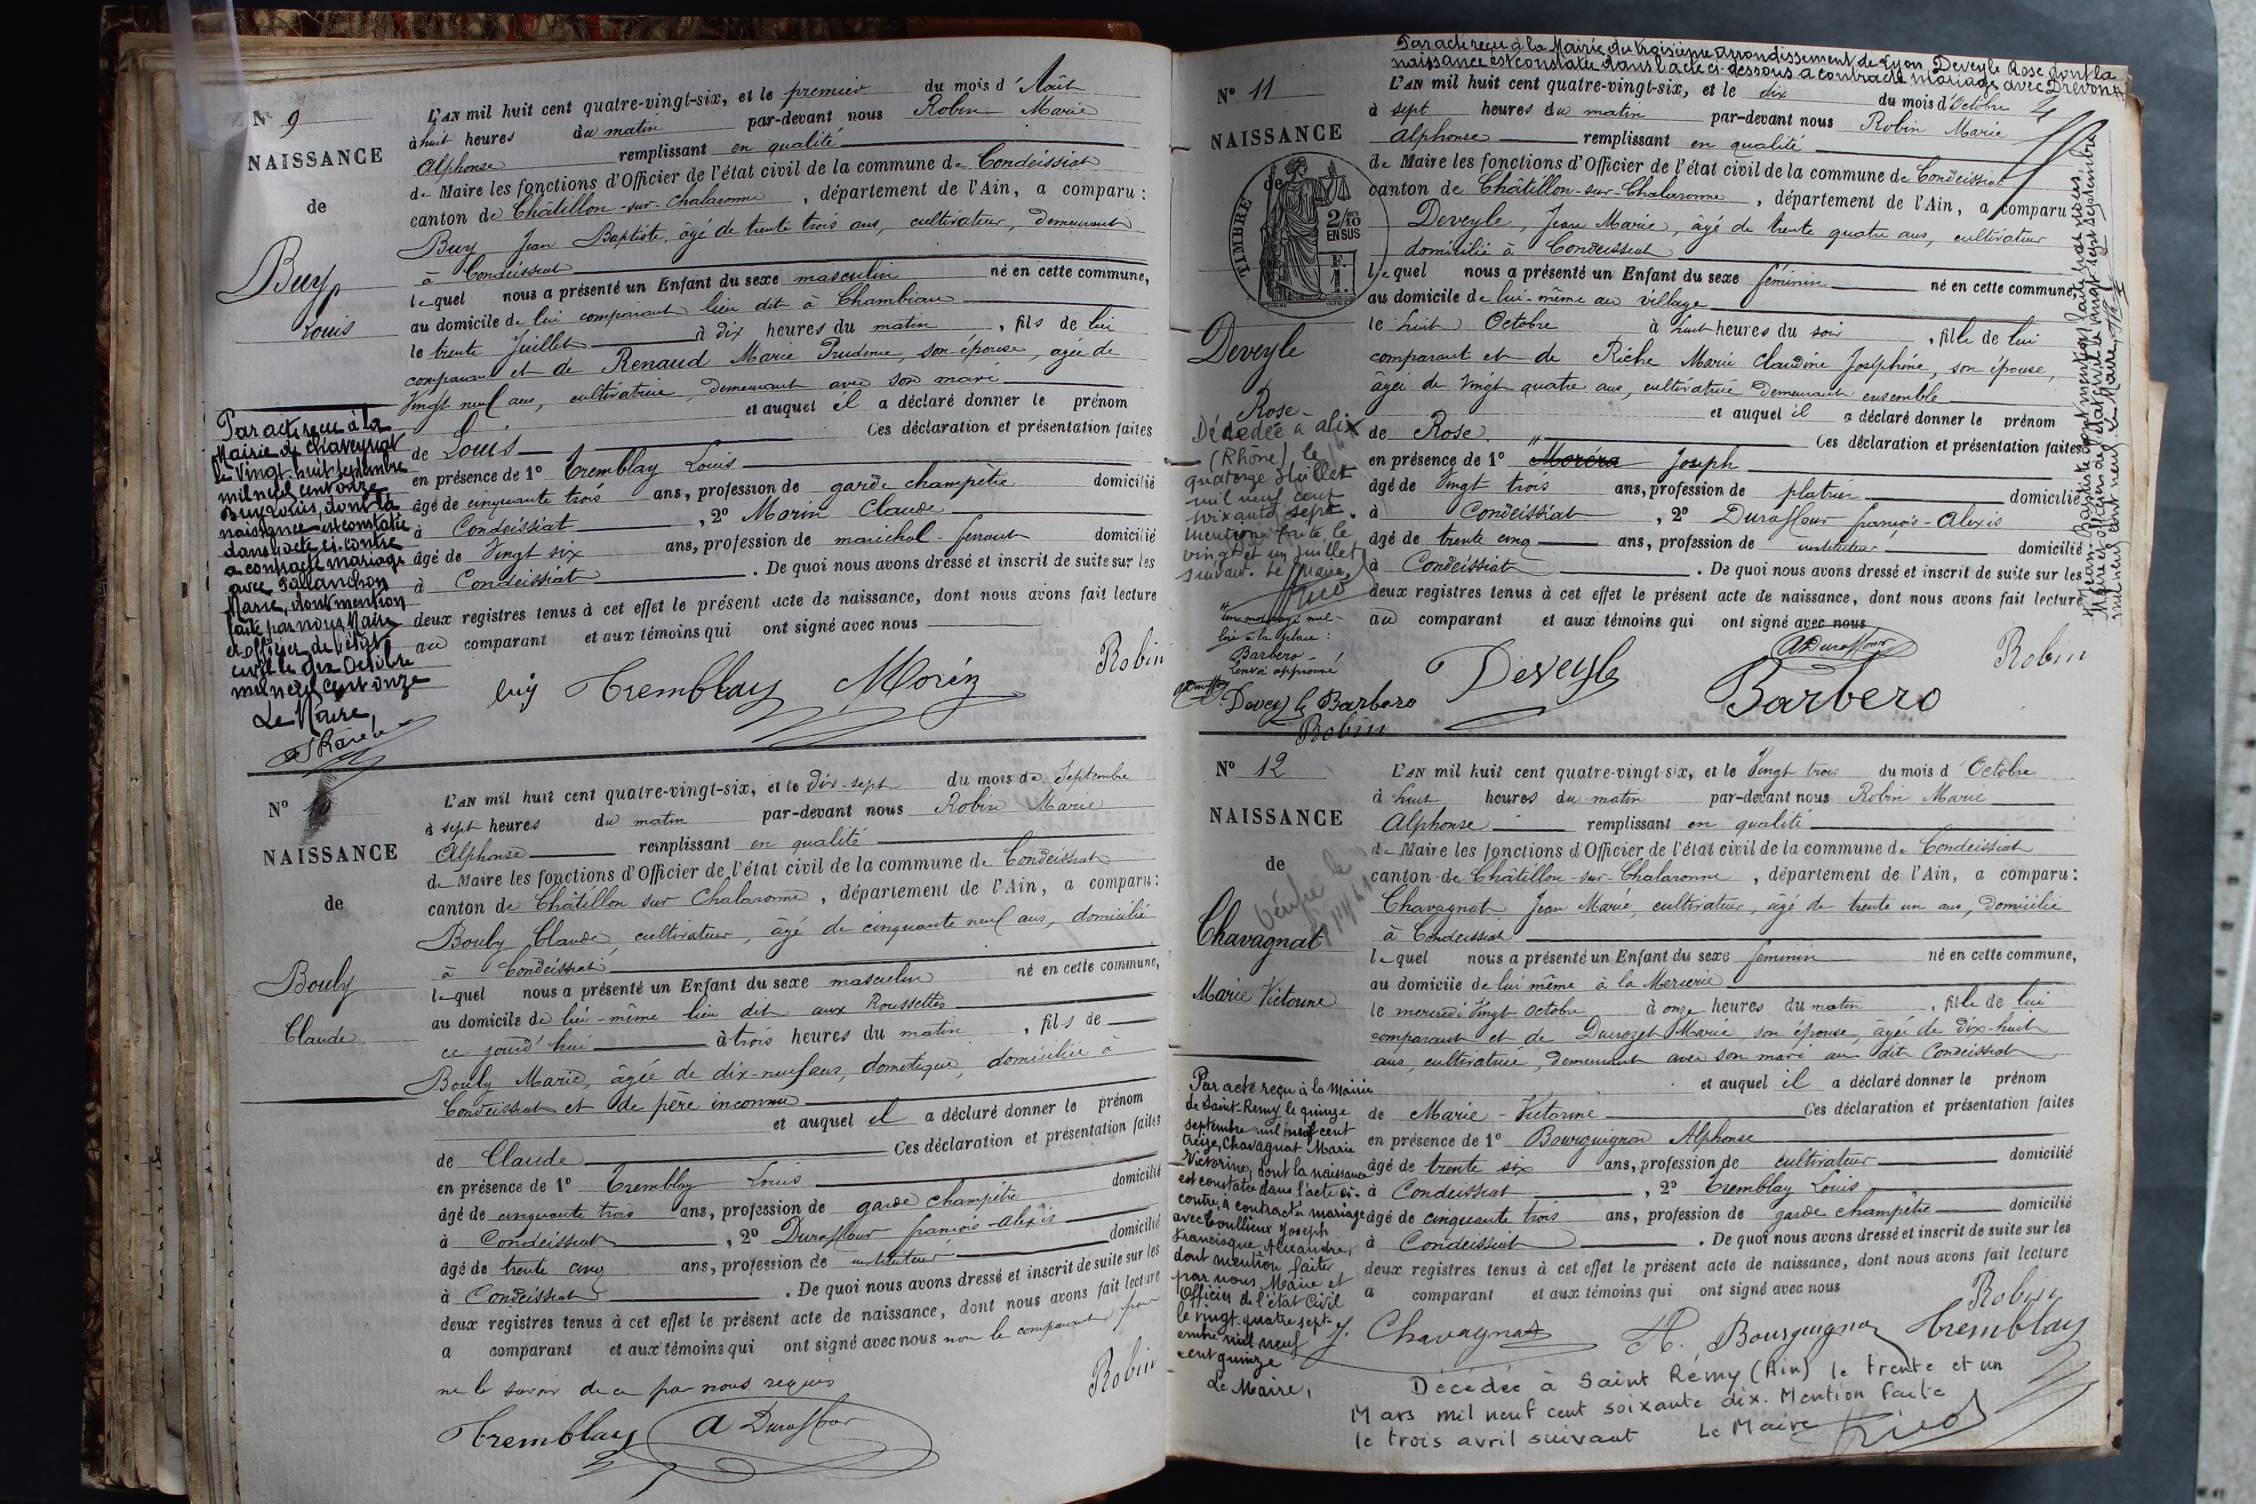 N° 9
NAISSANCE
de
Buy
Louis
L'AN mil huit cent quatre-vingt-six, et le premier du mois d'Août
à huit heures du matin par-devant nous Robin Marie
Alphonse remplissant en qualité
de Maire les fonctions d'Officier de l'état civil de la commune de Condeissiat
canton de Châtillon-sur-Chalaronne, département de l'Ain, a comparu:
Buy Jean Baptiste, âgé de trente trois ans, cultivateur, demeurant
à Condeissiat
lequel nous a présenté un Enfant du sexe masculin né en cette commune,
au domicile de lui comparant lieu dit à Chambiau
le trente Juillet à dix heures du matin, fils de lui
comparant et de Renaud Marie Prudence, son épouse, agée de
Vingt neuf ans, cultivatrice, demeurant avec son mari
et auquel il a déclaré donner le prénom
de Louis Ces déclaration et présentation faites
en présence de 1° Tremblay Louis
âgé de cinquante trois ans, profession de garde champêtre domicilié
à Condeissiat, 2° Morin Claude
âgé de Vingt six ans, profession de maréchal-ferrant domicilié
à Condeissiat. De quoi nous avons dressé et inscrit de suite sur les
deux registres tenus à cet effet le présent acte de naissance, dont nous avons fait lecture
au comparant et aux témoins qui ont signé avec nous
Buy Tremblay Morin Robin
Par acte reçu à la
Mairie de Chaveyriat
le Vingt-huit septembre
mil neuf cent onze
Buy Louis, dont la
naissance est constatée
dans l'acte ci-contre
a contracté mariage
avec Pallanchon
Marie, dont mention
faite par nous Maire
et officier de l'état
civil le dix Octobre
mil neuf cent onze
Le Maire,
N°
NAISSANCE
de
Bouly
Claude
L'AN mil huit cent quatre-vingt-six, et le dix-sept du mois de Septembre
à sept heures du matin par-devant nous Robin Marie
Alphonse remplissant en qualité
de Maire les fonctions d'Officier de l'état civil de la commune de Condeissiat
canton de Châtillon sur Chalaronne, département de l'Ain, a comparu:
Bouly Claude, cultivateur, âgé de cinquante neuf ans, domicilié
à Condeissiat
lequel nous a présenté un Enfant du sexe masculin né en cette commune,
au domicile de lui-même lieu dit aux Roussettes
ce jourd'hui à trois heures du matin, fils de
Bouly Marie, âgée de dix-neuf ans, domestique, domiciliée à
Condeissiat et de père inconnu
et auquel il a déclaré donner le prénom
de Claude Ces déclaration et présentation faites
en présence de 1° Tremblay Louis
âgé de cinquante trois ans, profession de garde champêtre domicilié
à Condeissiat, 2° Duraffour françois-alexis
âgé de trente cinq ans, profession de instituteur domicilié
à Condeissiat. De quoi nous avons dressé et inscrit de suite sur les
deux registres tenus à cet effet le présent acte de naissance, dont nous avons fait lecture
a comparant et aux témoins qui ont signé avec nous non le comparant pour
ne le savoir de ce par nous requis Robin
Tremblay A Duraffour
Par acte reçu à la Mairie du troisième arrondissement de Lyon Deveyle Rose dont la
naissance est constatée dans l'acte ci-dessous a contracté mariage avec Drevon
N° 11
NAISSANCE
de
TIMBRE
2/10
EN SUS
Deveyle
Rose
L'AN mil huit cent quatre-vingt-six, et le dix du mois d'Octobre
à sept heures du matin par-devant nous Robin Marie
Alphonse remplissant en qualité
de Maire les fonctions d'Officier de l'état civil de la commune de Condeissiat
canton de Châtillon-sur-Chalaronne, département de l'Ain, a comparu
Deveyle, Jean Marie, âgé de trente quatre ans, cultivateur
domicilié à Condeissiat
lequel nous a présenté un Enfant du sexe féminin né en cette commune,
au domicile de lui-même au village
le huit Octobre à huit heures du soir, fille de lui
comparant et de Riche Marie Claudine Joséphine, son épouse,
âgée de Vingt quatre ans, cultivatrice demeurant ensemble
et auquel il a déclaré donner le prénom
de Rose. Ces déclaration et présentation faites
en présence de 1° Moréra Joseph
âgé de Vingt trois ans, profession de platrier domicilié
à Condeissiat, 2° Durafflour françois-Alexis
âgé de trente cinq ans, profession de instituteur domicilié
à Condeissiat. De quoi nous avons dressé et inscrit de suite sur les
deux registres tenus à cet effet le présent acte de naissance, dont nous avons fait lecture
au comparant et aux témoins qui ont signé avec nous
A Duraffour Robin
Deveyle Barbero
Décédée à Alix
(Rhône) le
quatorze Juillet
mil neuf cent
soixante sept.
mention faite le
vingt et un juillet
suivant. Le Maire,
un mot rayé nul
lire à la place:
Barbero
renvoi approuvé
Deveyle Barbero
Robin
Jean-Baptiste dont mention faite par nous,
Maire et officier de l'état civil le vingt-sept septembre
mil neuf cent neuf. Le Maire,
N° 12
NAISSANCE
de
Chavagnat
Marie Victorine
L'AN mil huit cent quatre-vingt-six, et le Vingt trois du mois d'Octobre
à huit heures du matin par-devant nous Robin Marie
Alphonse remplissant en qualité
de Maire les fonctions d'Officier de l'état civil de la commune de Condeissiat
canton de Châtillon-sur-Chalaronne, département de l'Ain, a comparu:
Chavagnat Jean Marie, cultivateur, agé de trente un ans, domicilié
à Condeissiat
lequel nous a présenté un Enfant du sexe féminin né en cette commune,
au domicile de lui même à la Mercerie
le mercredi Vingt Octobre à onze heures du matin, fille de lui
comparant et de Durozet Marie, son épouse, âgée de dix-huit
ans, cultivatrice, demeurant avec son mari au dit Condeissiat
et auquel il a déclaré donner le prénom
de Marie-Victorine Ces déclaration et présentation faites
en présence de 1° Bourguignon Alphonse
âgé de trente six ans, profession de cultivateur domicilié
à Condeissiat, 2° Tremblay Louis
âgé de cinquante trois ans, profession de garde champêtre domicilié
à Condeissiat. De quoi nous avons dressé et inscrit de suite sur les
deux registres tenus à cet effet le présent acte de naissance, dont nous avons fait lecture
a comparant et aux témoins qui ont signé avec nous
Robin
Chavagnat A. Bourguignon Tremblay
Par acte reçu à la Mairie
de Saint-Remy le quinze
septembre mil neuf cent
treize, Chavagnat Marie
Victorine, dont la naissance
est constatée dans l'acte ci-
contre, a contracté mariage
avec Coullioux Joseph
Francisque Alexandre,
dont mention faite
par nous Maire et
Officier de l'état Civil
le vingt-quatre sept-
embre mil neuf
cent quinze
Le Maire,
Décédée à Saint Rémy (Ain) le trente et un
Mars mil neuf cent soixante dix. Mention faite
le trois avril suivant Le Maire